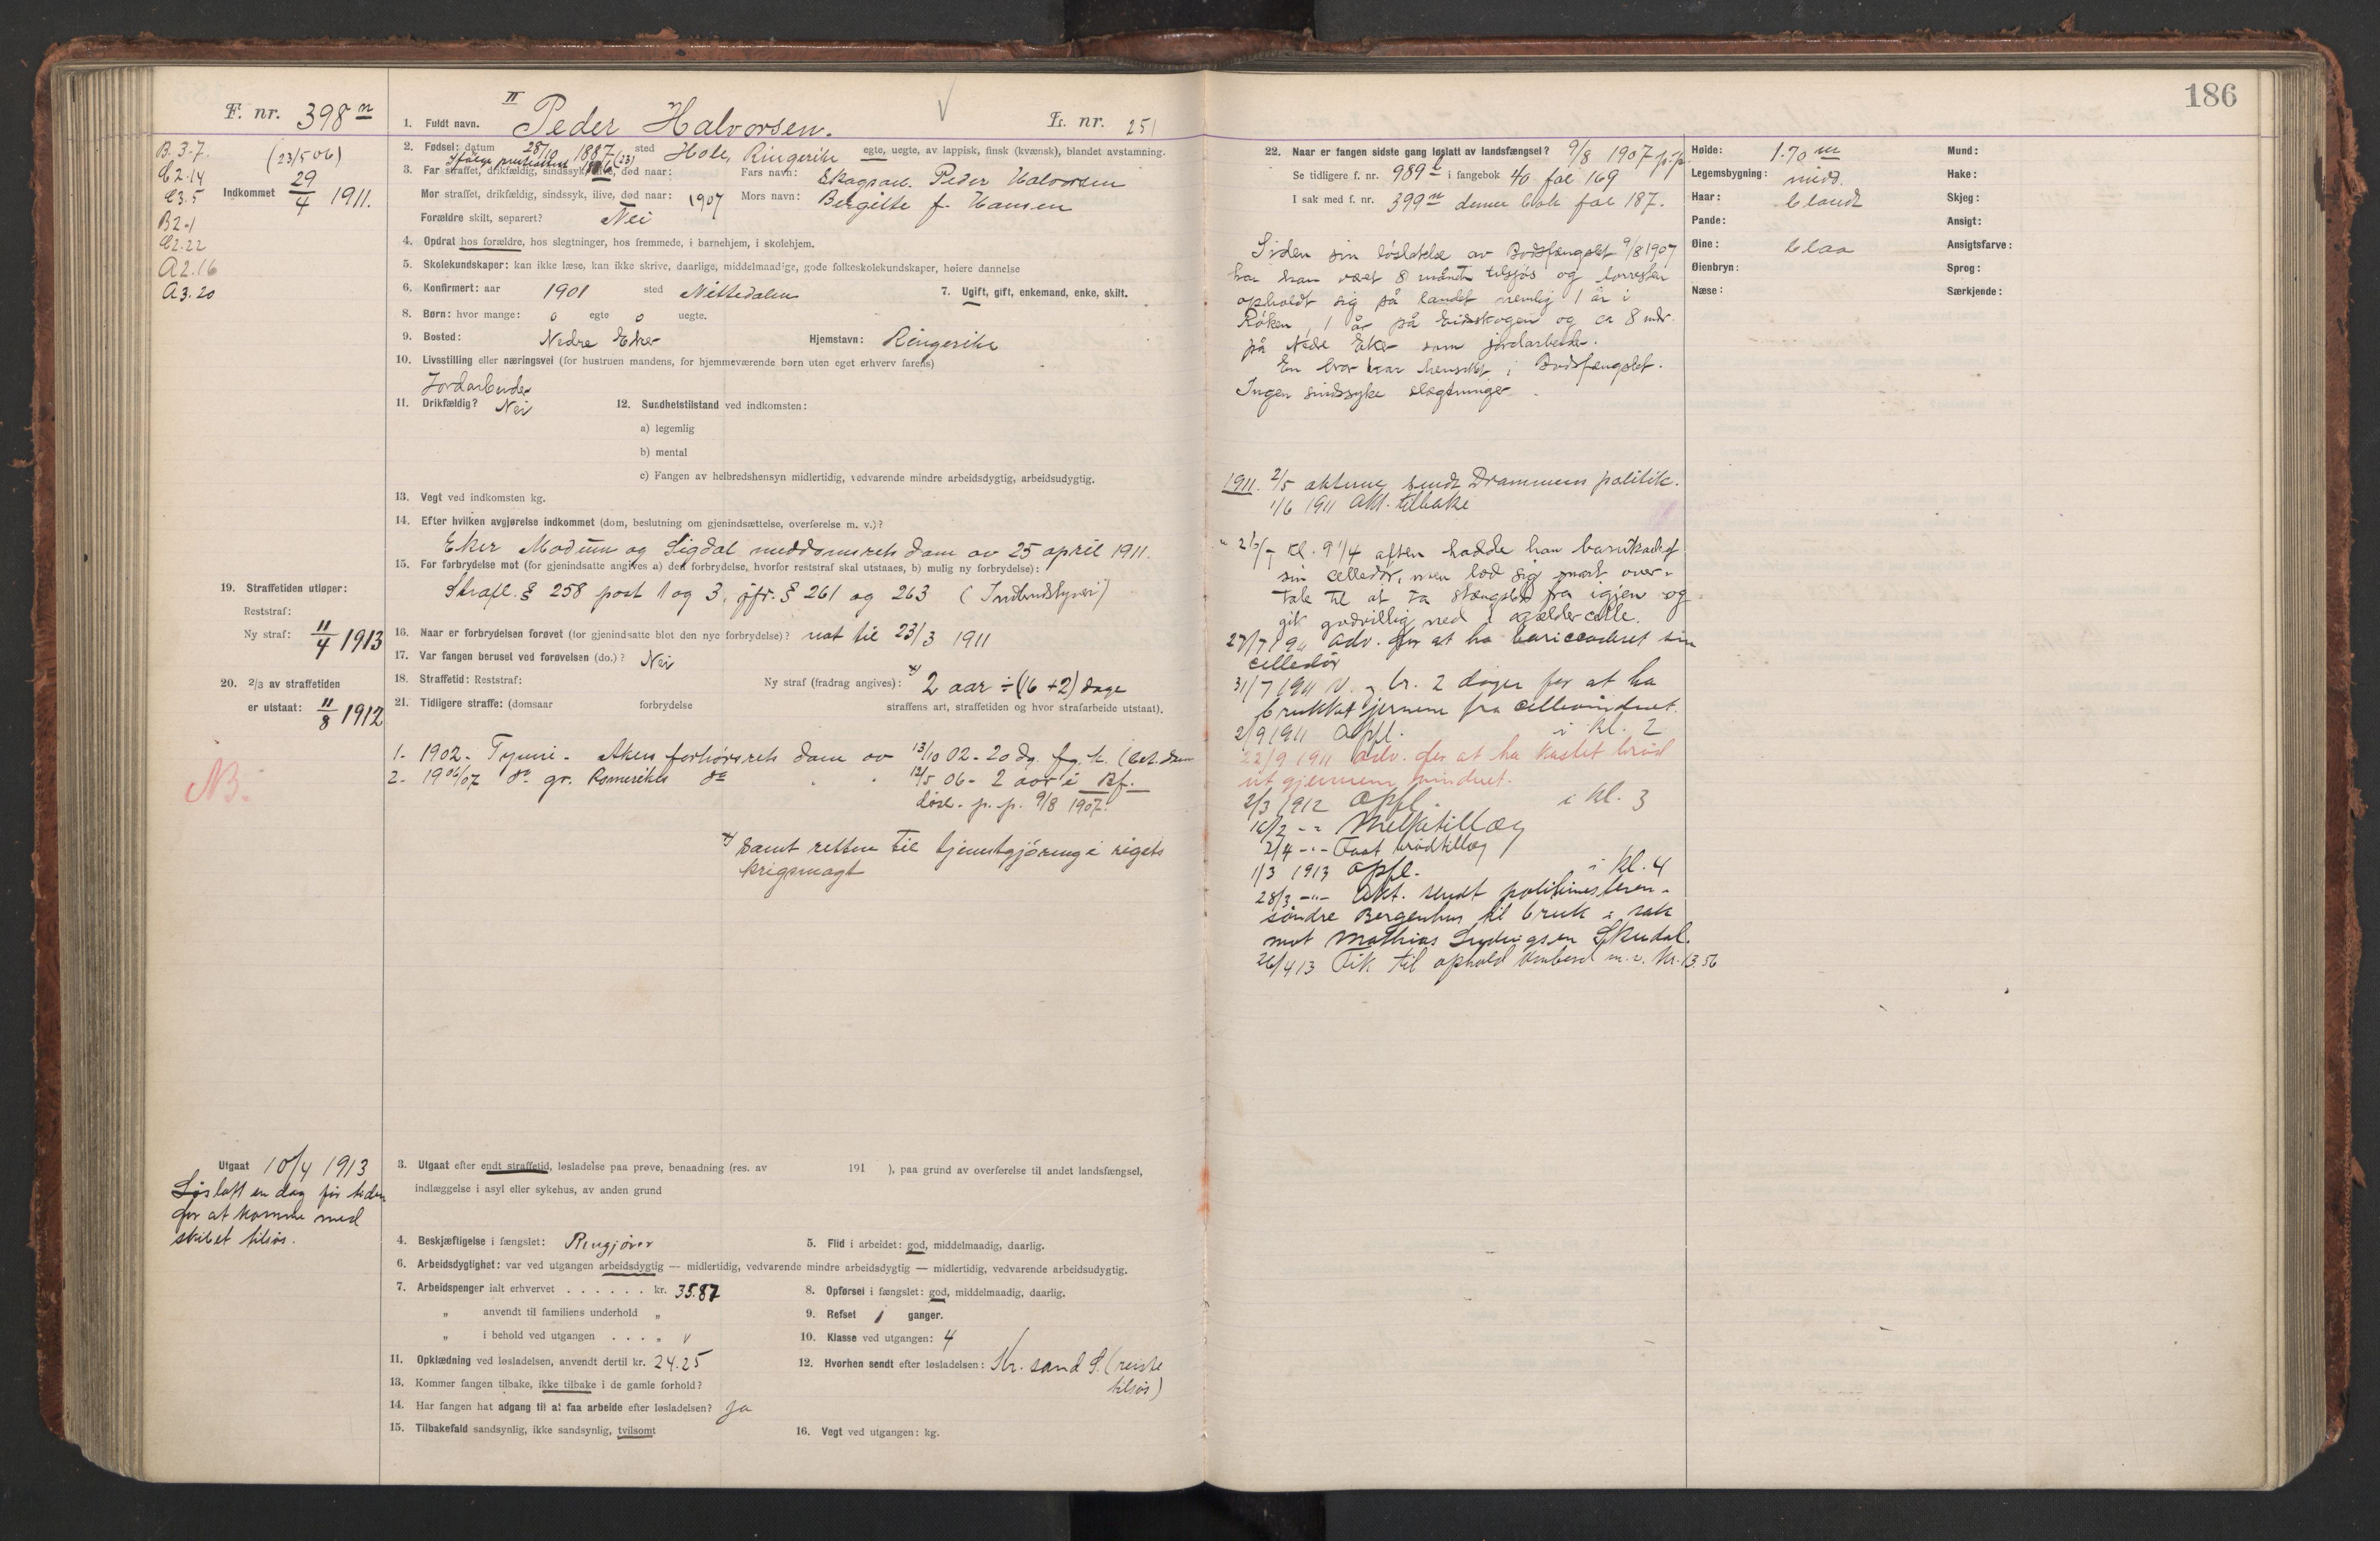 F. nr. 398 n
B. 3-7.
(23/5 06)
C 2.14
C3.5
Indkommet 29/4 1911.
B2-1
C2.22
A2.16
A3.20
II
1. Fuldt navn. Peder Halvorsen.
L. nr. 251
2. Fødsel: datum 28/10 1887 sted Hole, Ringerike egte, uegte, av lappisk, finsk (kvænsk), blandet avstamning.
Ifølge (23)
3. Far straffet, drikfældig, sindssyk, ilive, død naar: Fars navn: Skogsarb. Peder Halvorsen
Mor straffet, drikfældig, sindssyk, ilive, død naar: 1907 Mors navn: Bergitte f. Hansen
Forældre skilt, separert? Nei
4. Opdrat hos forældre, hos slegtninger, hos fremmede, i barnehjem, i skolehjem.
5. Skolekundskaper: kan ikke læse, kan ikke skrive, daarlige, middelmaadige, gode folkeskolekundskaper, høiere dannelse
6. Konfirmert: aar 1901 sted Nittedalen 7. Ugift, gift, enkemand, enke, skilt.
8. Børn: hvor mange: 0 egte 0 uegte.
9. Bosted: Nedre Eker Hjemstavn: Ringerike
10. Livsstilling eller næringsvei (for hustruen mandens, for hjemmeværende børn uten eget erhverv farens)
Jordarbeider
11. Drikfældig? Nei 12. Sundhetstilstand ved indkomsten:
a) legemlig
b) mental
c) Fangen av helbredshensyn midlertidig, vedvarende mindre arbeidsdygtig, arbeidsudygtig.
13. Vegt ved indkomsten kg.
14. Efter hvilken avgjørelse indkommet (dom, beslutning om gjenindsættelse, overførelse m. v.)?
Eker Modum og Sigdal meddomsrets dom av 25 april 1911.
15. For forbrydelse mot (for gjenindsatte angives a) den forbrydelse, hvorfor reststraf skal utstaaes, b) mulig ny forbrydelse):
Strafl. § 258 post 1 og 3, jfr. § 261 og 263 (Indbrudstyveri)
19. Straffetiden utløper:
Reststraf:
Ny straf: 11/4 1913
16. Naar er forbrydelsen forøvet (for gjenindsatte blot den nye forbrydelse)? nat til 23/3 1911
17. Var fangen beruset ved forøvelsen (do.)? Nei
20. 2/3 av straffetiden
er utstaat: 11/8 1912
18. Straffetid: Reststraf: Ny straf (fradrag angives): *) 2 aar ÷ (16 + 2) dage
21. Tidligere straffe: (domsaar forbrydelse straffens art, straffetiden og hvor strafarbeide utstaat).
1. 1902. Tyveri. Akers forhørsrets dom av 13/10 02. 20 dg. fg. (bet. dom
2. 1906/07 do gr. Romerikes do " " 12/5 06 - 2 aar i Bf.
løsl. p. p. 9/8 1907.
NB.
*) Samt retten til tjenestgjøring i rigets
krigsmagt
Utgaat 10/4 1913
Løslatt en dag før tiden
for at komme med
skibet tilsjøs.
3. Utgaat efter endt straffetid, løsladelse paa prøve, benaadning (res. av 191 ), paa grund av overførelse til andet landsfængsel,
indlæggelse i asyl eller sykehus, av anden grund
4. Beskjæftigelse i fængslet: Rengjører 5. Flid i arbeidet: god, middelmaadig, daarlig.
6. Arbeidsdygtighet: var ved utgangen arbeidsdygtig — midlertidig, vedvarende mindre arbeidsdygtig — midlertidig, vedvarende arbeidsudygtig.
7. Arbeidspenger ialt erhvervet . . . . . . kr. 35.87 8. Opførsel i fængslet: god, middelmaadig, daarlig.
" anvendt til familiens underhold " 9. Refset 1 ganger.
" i behold ved utgangen . . . " 10. Klasse ved utgangen: 4
11. Opklædning ved løsladelsen, anvendt dertil kr. 24.25 12. Hvorhen sendt efter løsladelsen: Kr.sand S. (reiste
tilsjøs)
13. Kommer fangen tilbake, ikke tilbake i de gamle forhold?
14. Har fangen hat adgang til at faa arbeide efter løsladelsen? Ja
15. Tilbakefald sandsynlig, ikke sandsynlig, tvilsomt 16. Vegt ved utgangen: kg.
186
22. Naar er fangen sidste gang løslatt av landsfængsel? 9/8 1907 p.p.
Se tidligere f. nr. 989 i fangebok 40 fol 169
I sak med f. nr. 399 n denne bok fol 187.
Siden sin løslatelse av Bodsfængslet 9/8 1907
har han været 8 måndr tilsjøs og forresten
opholdt sig på landet nemlig 1 år i
Røken, 1 år på Eidskogen og ca 8 mdr.
på Nedre Eker som jordarbeider.
En bror har hensittet i Bodsfængslet.
Ingen sindssyke slægtninger.
1911. 2/5 akterne sendt Drammens politik.
1/6 1911 Akt. tilbake
" 26/7 kl. 9 1/4 aften hadde han barrikadert
sin celledør, men lod sig snart over-
tale til at ta stængslet fra igjen og
gik godvillig ned i kjældercelle.
27/7 1911 adv. for at ha bariccaderet sin
celledør
31/7 1911 V. og br. 2 dager for at ha
brukket jernene fra cellevinduet.
2/9 1911 Opfl. i kl. 2
22/9 1911 adv. for at ha kastet brød
ut gjennem vinduet.
2/3 1912 Opfl. i kl. 3
16/2 -"- Melketillæg
2/4 -"- Faat brødtillæg
1/3 1913 Opfl. i kl. 4
28/3 -"- Akt. sendt politimesteren i
søndre Bergenhus til bruk i sak
mot Mathias Ludvigsen Skudal.
26/4 13 Fik til ophold ombord m. v. kr. 13.56
Høide: 1.70 m
Legemsbygning: midd.
Haar: blondt
Pande:
Øine: blaa
Øienbryn:
Næse:
Mund:
Hake:
Skjeg:
Ansigt:
Ansigtsfarve:
Sprog:
Særkjende: